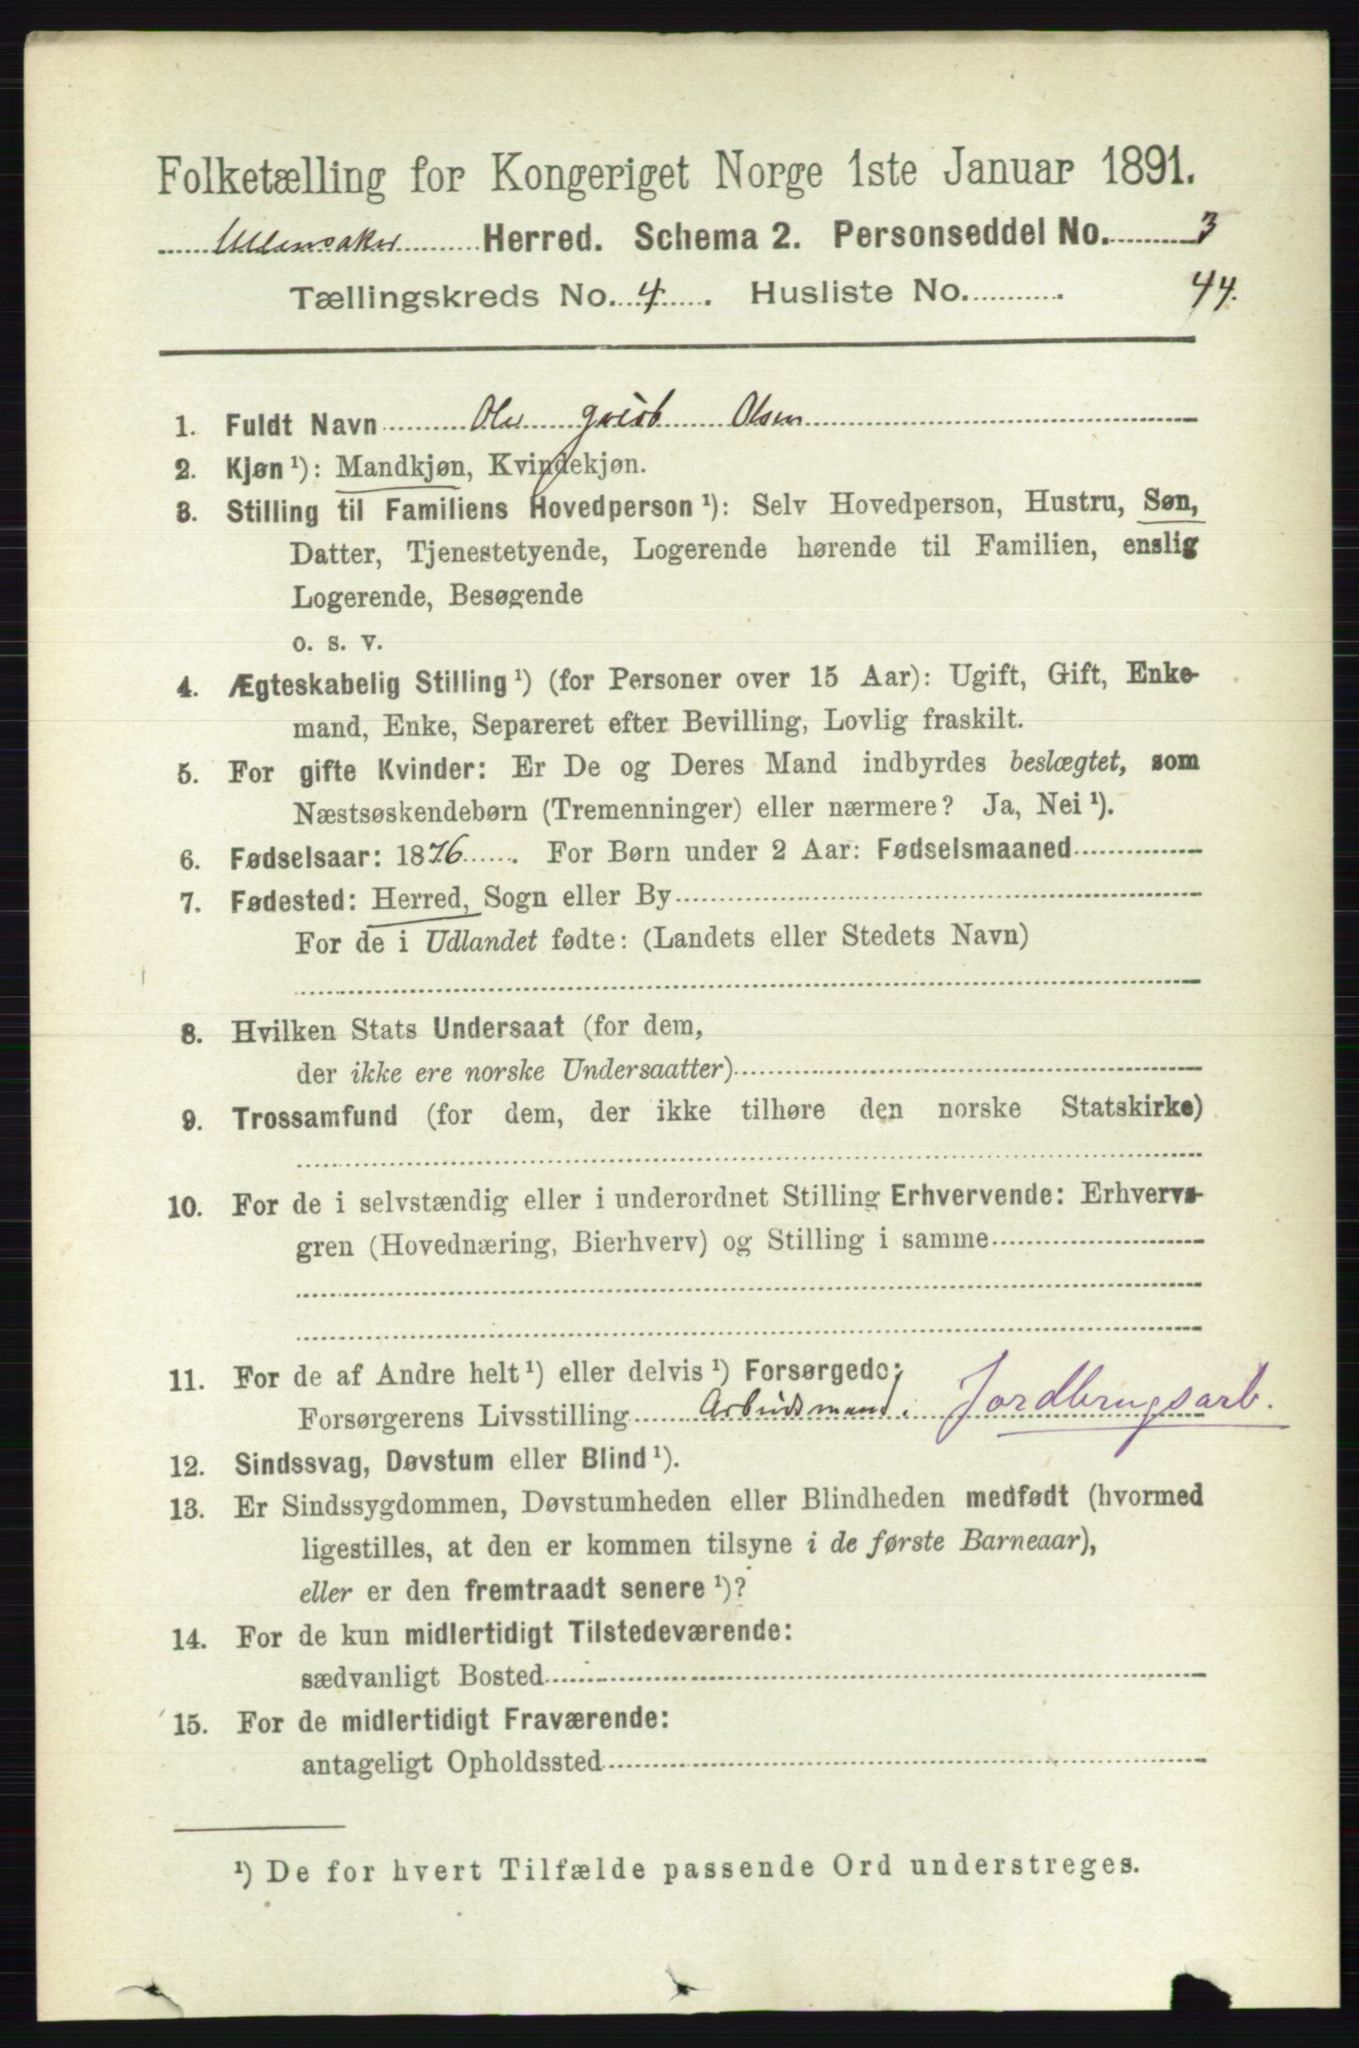 Folketælling for Kongeriget Norge 1ste Januar 1891.
Ullensaker Herred. Schema 2. Personseddel No. 3
Tællingskreds No. 4. Husliste No. 44.
1. Fuldt Navn Olsen
2. Kjøn ¹): Mandkjøn, Kvindekjøn.
3. Stilling til Familiens Hovedperson ¹): Selv Hovedperson, Hustru, Søn,
Datter, Tjenestetyende, Logerende hørende til Familien, enslig
Logerende, Besøgende
o. s. v.
4. Ægteskabelig Stilling ¹) (for Personer over 15 Aar): Ugift, Gift, Enke-
mand, Enke, Separeret efter Bevilling, Lovlig fraskilt.
5. For gifte Kvinder: Er De og Deres Mand indbyrdes beslægtet, som
Næstsøskendebørn (Tremenninger) eller nærmere? Ja, Nei ¹).
6. Fødselsaar: 1876. For Børn under 2 Aar: Fødselsmaaned
7. Fødested: Herred, Sogn eller By
For de i Udlandet fødte: (Landets eller Stedets Navn)
8. Hvilken Stats Undersaat (for dem,
der ikke ere norske Undersaatter)
9. Trossamfund (for dem, der ikke tilhøre den norske Statskirke)
10. For de i selvstændig eller i underordnet Stilling Erhvervende: Erhvervs-
gren (Hovednæring, Bierhverv) og Stilling i samme
11. For de af Andre helt ¹) eller delvis ¹) Forsørgede:
Forsørgerens Livsstilling Arbeidsmand. Jordbrugsarb.
12. Sindssvag, Døvstum eller Blind ¹).
13. Er Sindssygdommen, Døvstumheden eller Blindheden medfødt (hvormed
ligestilles, at den er kommen tilsyne i de første Barneaar),
eller er den fremtraadt senere ¹)?
14. For de kun midlertidigt Tilstedeværende:
sædvanligt Bosted
15. For de midlertidigt Fraværende:
antageligt Opholdssted
¹) De for hvert Tilfælde passende Ord understreges.